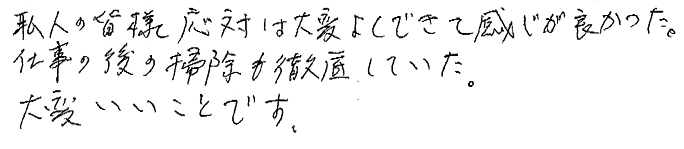 職人の皆様応対は大変よくできて感じが良かった。
仕事の後の掃除も徹底していた。
大変いいことです。